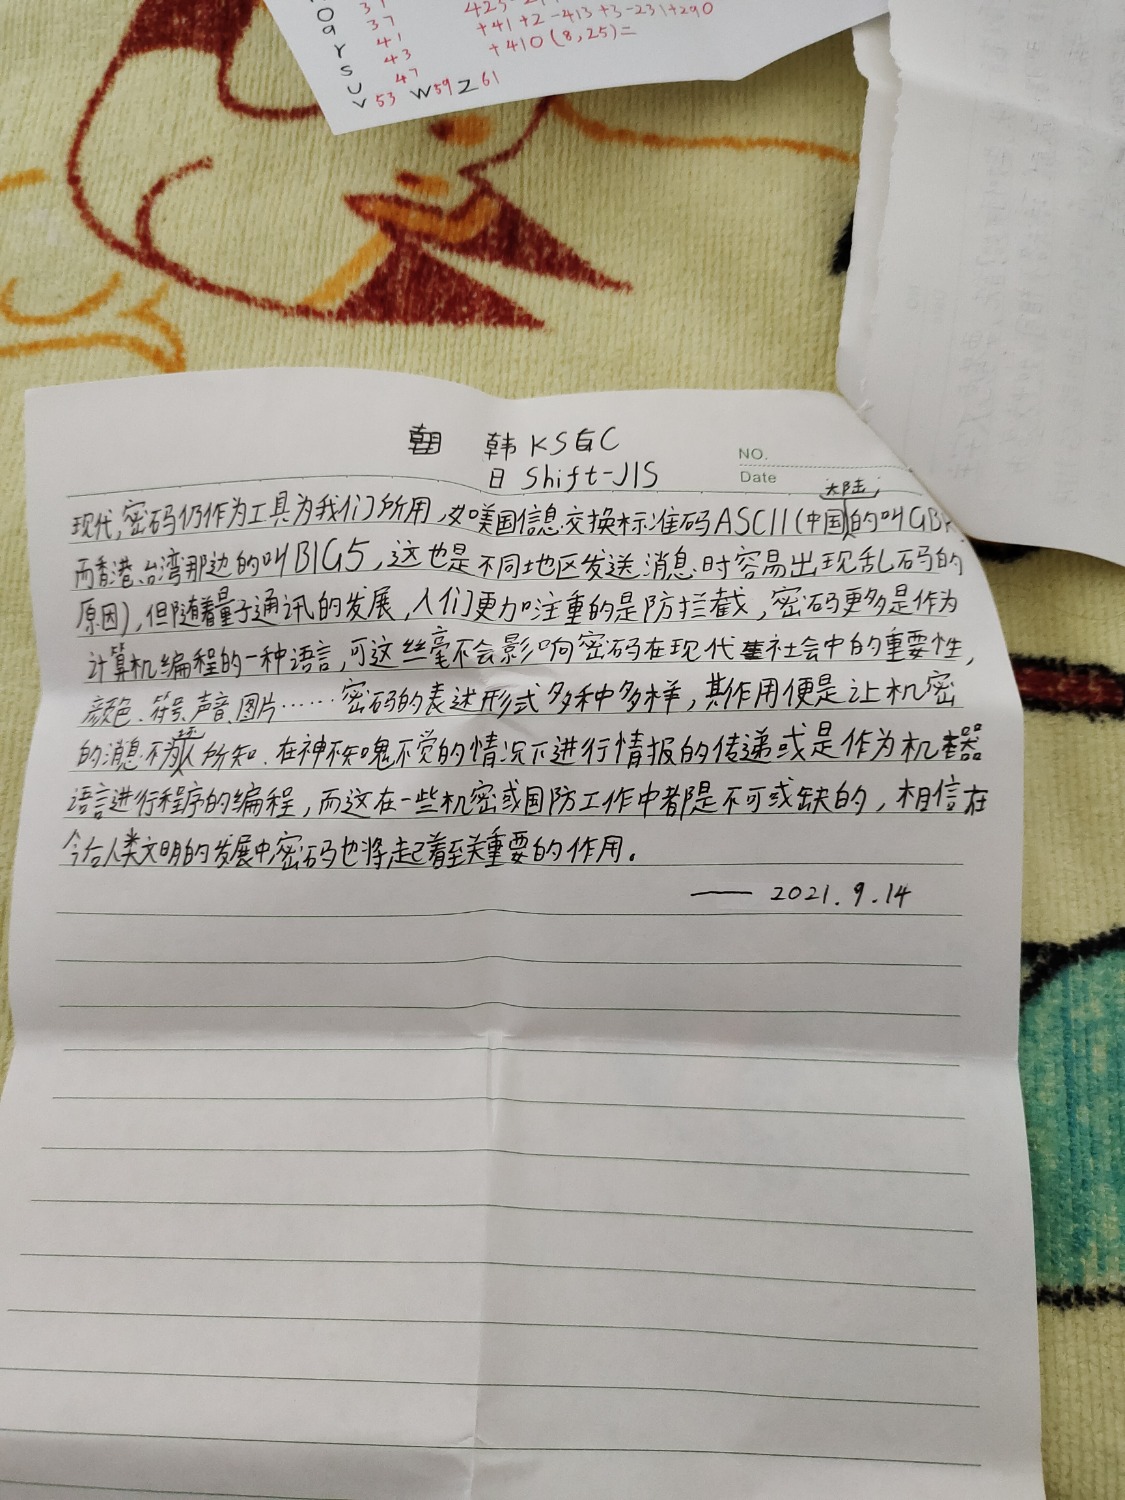 37
41
43
47
q
r
s
u
v 53 W 59 Z 61
+41+2-413+3-231+290
+410(8,25)=
韩 KSGC
日 Shift-JIS
NO.
Date
大陆,
现代,密码仍作为工具为我们所用,如美国信息交换标准码ASCII(中国的叫GBK
而香港、台湾那边的叫BIG5,这也是不同地区发送消息时容易出现乱码的
原因),但随着量子通讯的发展,人们更加注重的是防拦截,密码更多是作为
计算机编程的一种语言,可这丝毫不会影响密码在现代社会中的重要性,
颜色、符号、声音、图片……密码的表述形式多种多样,其作用便是让机密
的消息不为人所知.在神不知鬼不觉的情况下进行情报的传递或是作为机器
语言进行程序的编程,而这在一些机密或国防工作中都是不可或缺的,相信在
今后人类文明的发展中密码也将起着至关重要的作用。
——2021.9.14